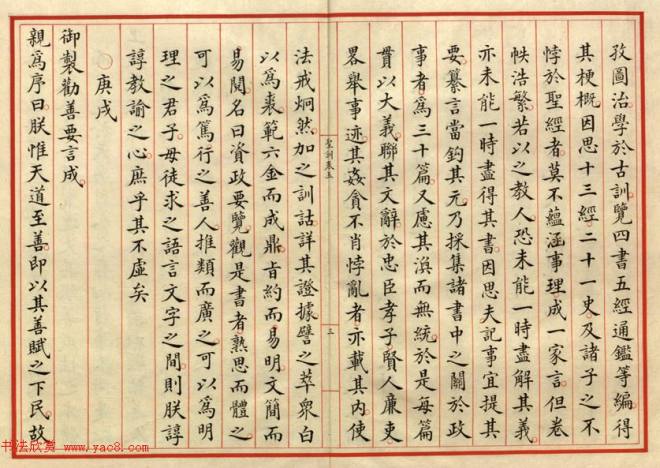 孜圖治學於古訓覽四書五經通鑑等編得
其梗概因思十三經二十一史及諸子之不
悖於聖經者莫不蘊涵事理成一家言但卷
帙浩繁若以之教人恐未能一時盡解其義
亦未能一時盡得其書因思夫記事宜提其
要纂言當鉤其元乃採集諸書中之關於政
事者為三十篇又慮其渙而無統於是每篇
貫以大義聯其文辭於忠臣孝子賢人廉吏
畧舉事迹其姦貪不肖悖亂者亦載其內使
聖訓卷五
三
法戒炯然加之訓詁詳其證據譬之萃眾白
以為裘範六金而成鼎旨約而易明文簡而
易閱名曰資政要覽觀是書者熟思而體之
可以為篤行之善人推類而廣之可以為明
理之君子毋徒求之語言文字之間則朕諄
諄教諭之心庶乎其不虛矣
庚戌
御製勸善要言成
親為序曰朕惟天道至善即以其善賦之下民故
书法欣赏 www.yac8.com